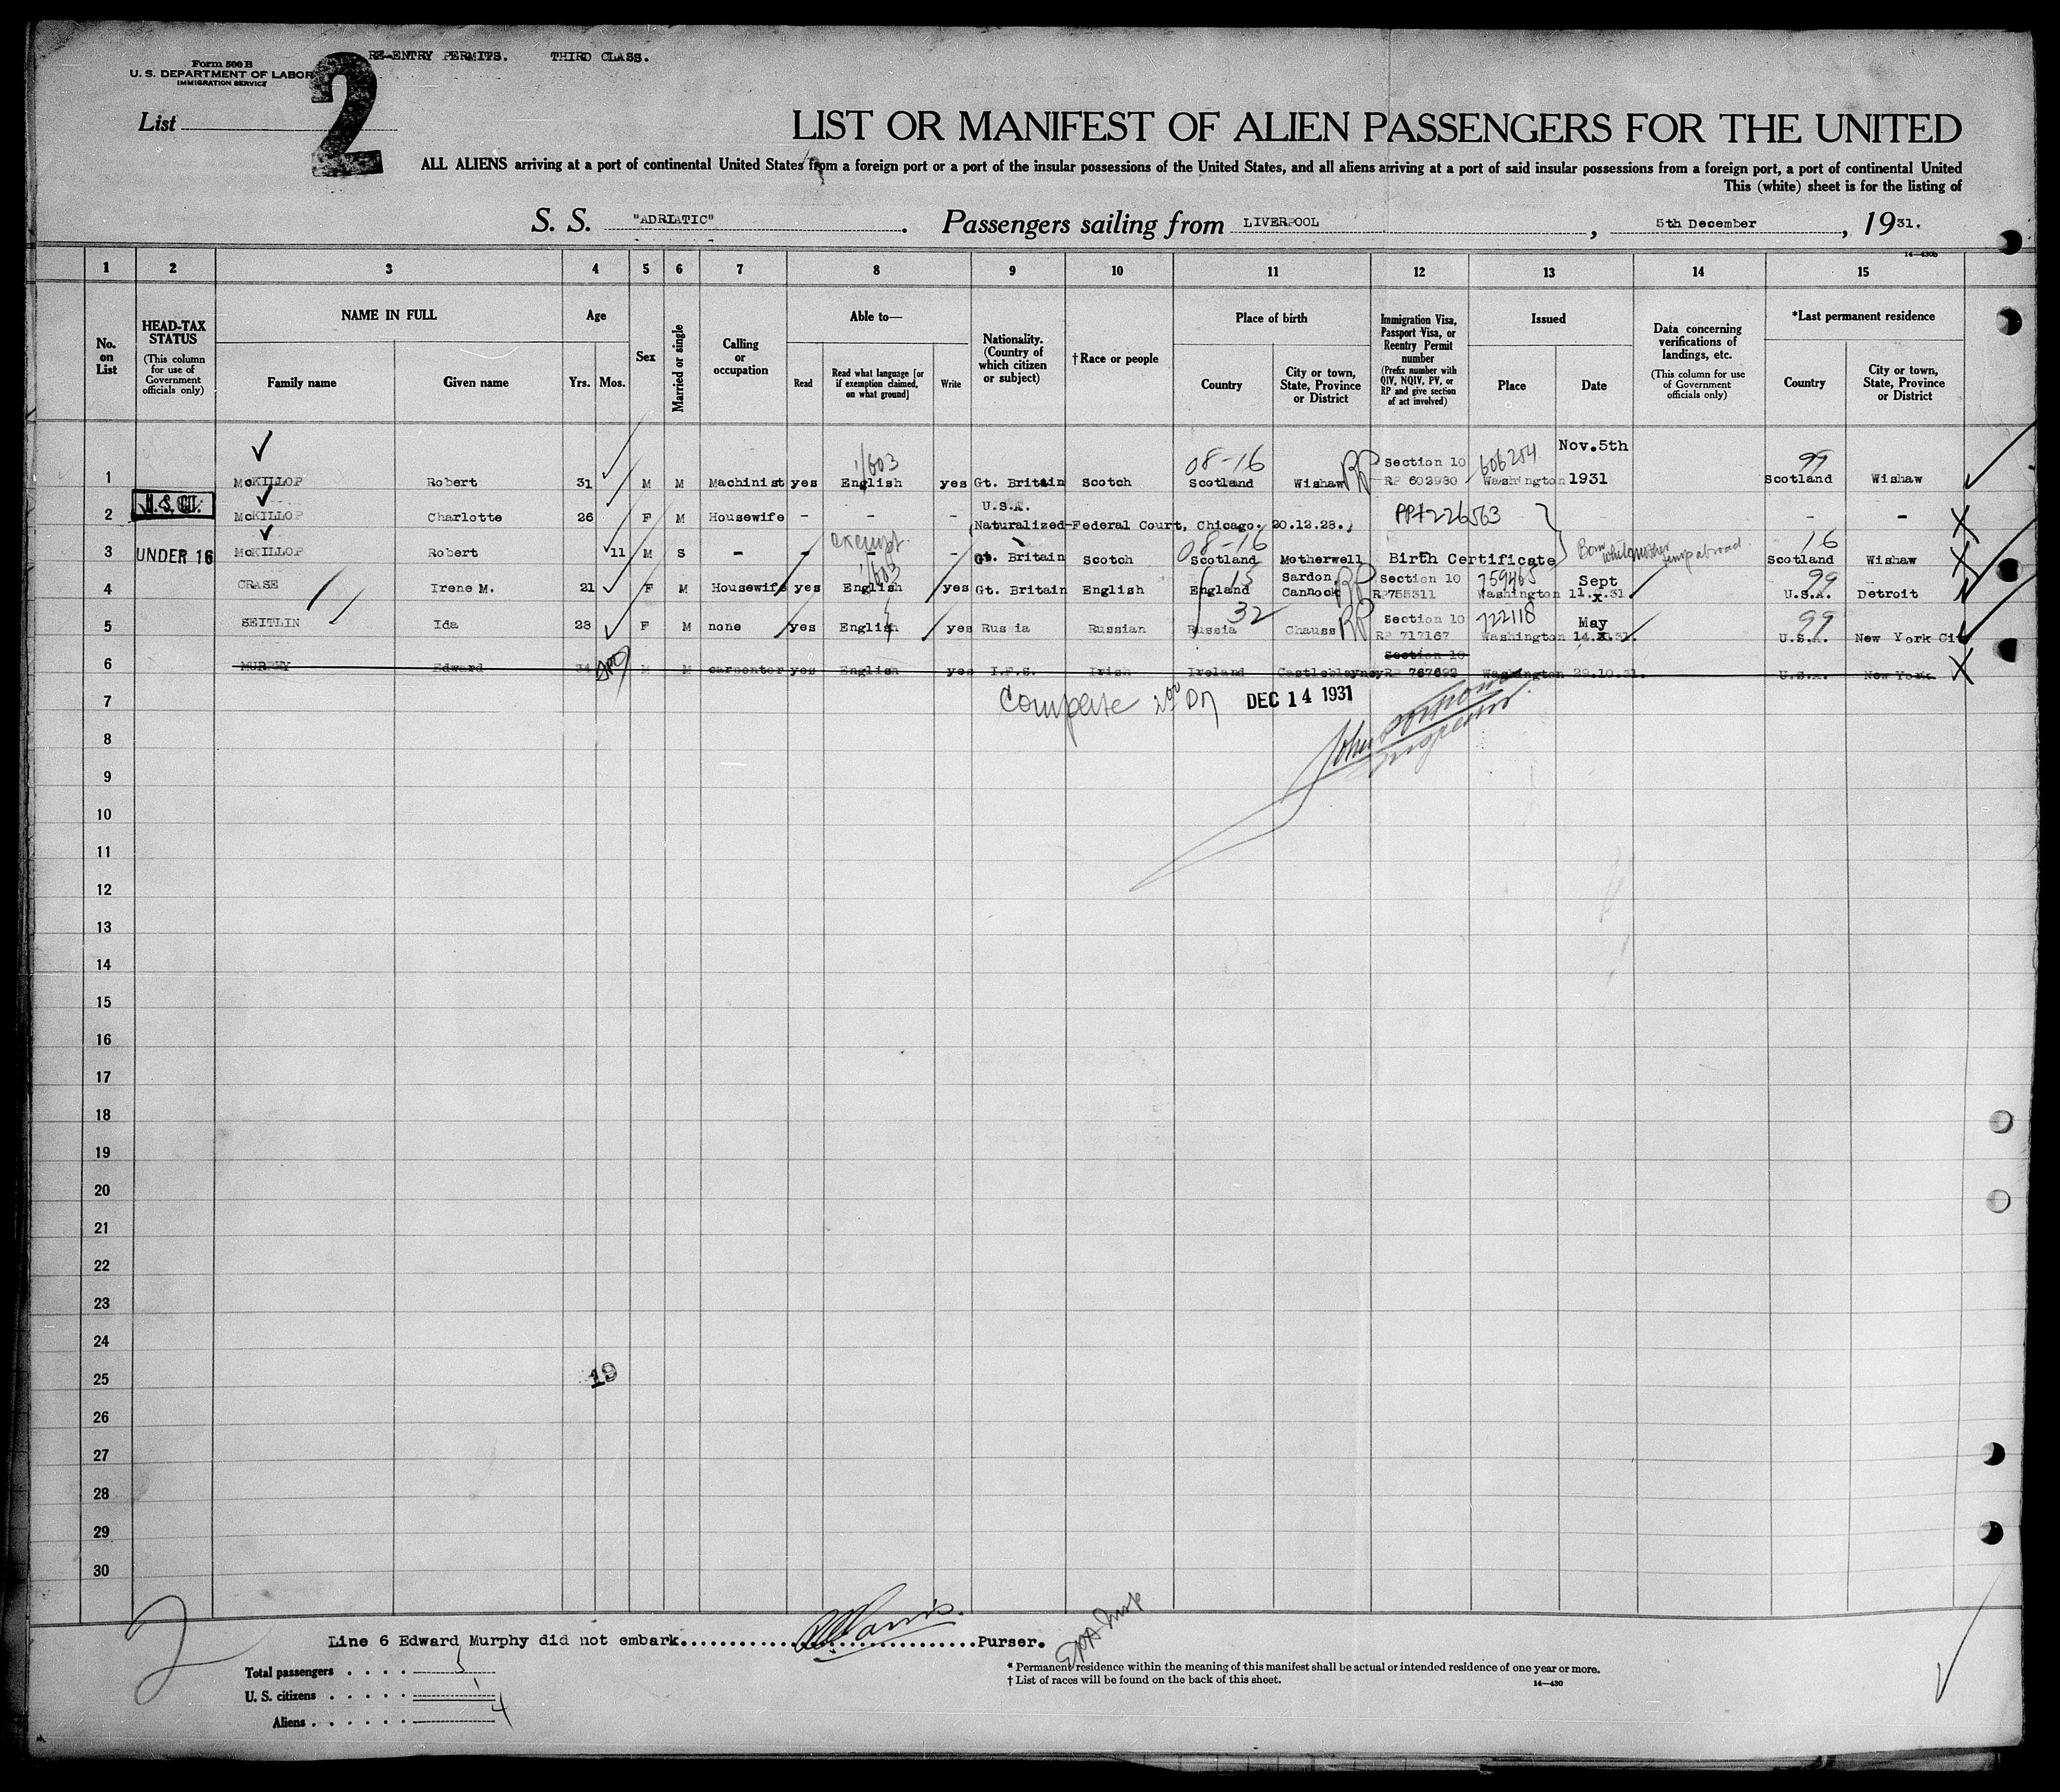 RE-ENTRY PERMITS. THIRD CLASS.
Form 500 B
U. S. DEPARTMENT OF LABOR
IMMIGRATION SERVICE
2
List
LIST OR MANIFEST OF ALIEN PASSENGERS FOR THE UNITED
ALL ALIENS arriving at a port of continental United States from a foreign port or a port of the insular possessions of the United States, and all aliens arriving at a port of said insular possessions from a foreign port, a port of continental United
This (white) sheet is for the listing of
S. S. "ADRIATIC" . Passengers sailing from LIVERPOOL , 5th December , 1931.
14—430b
1 2 3 4 5 6 7 8 9 10 11 12 13 14 15
No. on List
HEAD-TAX STATUS (This column for use of Government officials only)
NAME IN FULL
Family name Given name
Age
Yrs. Mos.
Sex
Married or single
Calling or occupation
Able to—
Read Read what language [or if exemption claimed, on what ground] Write
Nationality. (Country of which citizen or subject)
†Race or people
Place of birth
Country City or town, State, Province or District
Immigration Visa, Passport Visa, or Reentry Permit number (Prefix number with QIV, NQIV, PV, or RP and give section of act involved)
Issued
Place Date
Data concerning verifications of landings, etc. (This column for use of Government officials only)
*Last permanent residence
Country City or town, State, Province or District
1/603 08-16 Section 10 606254 Nov.5th 99
1 McKILLOP Robert 31 M M Machinist yes English yes Gt. Britain Scotch Scotland Wishaw RP RP 602980 Washington 1931 Scotland Wishaw
U.S. CIT. U.S.A.
2 McKILLOP Charlotte 26 F M Housewife - - - Naturalized-Federal Court, Chicago. 20.12.28. PPt 226563 - -
exempt 08-16 16
3 UNDER 16 McKILLOP Robert 11 M S - - - - Gt. Britain Scotch Scotland Motherwell Birth Certificate Born while mother temp abroad Scotland Wishaw
1/603 15 Sardon, Section 10 759465 Sept 99
4 CRASE Irene M. 21 F M Housewife yes English yes Gt. Britain English England Cannock RP RP755311 Washington 11.x.31. U.S.A. Detroit
32 Section 10 722118 May 99
5 SEITLIN Ida 28 F M none yes English yes Russia Russian Russia Chauss RP RP 717167 Washington 14.x.31. U.S.A. New York City
Section 10
6 MURPHY Edward 34 M M carpenter yes English yes I.F.S. Irish Ireland Castleblayney RP 767692 Washington 29.10.31. U.S.A. New York.
7 DEC 14 1931
8
9
10
11
12
13
14
15
16
17
18
19
20
21
22
23
24
25 19
26
27
28
29
30
2
Line 6 Edward Murphy did not embark Purser.
Total passengers 5
U. S. citizens 1
Aliens 4
* Permanent residence within the meaning of this manifest shall be actual or intended residence of one year or more.
† List of races will be found on the back of this sheet.
14—430